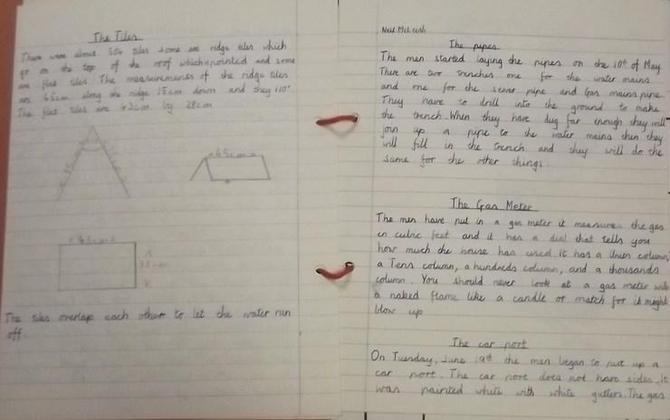 The Tiles
There were about 550 tiles some are ridge tiles which
go on the top of the roof which pointed and some
are flat tiles. The measurements of the ridge tiles
are 45cm along the ridge 15cm down and they 110°
The flat tiles are 42cm by 28cm
45cm
The tiles overlap each other to let the water run
off.
Neil
The pipes
The men started laying the pipes on the 10th of May
There are two trenches one for the water mains
and one for the sewer pipe and Gas mains pipe.
They have to drill into the ground to make
the trench. When they have dug far enough they will
join up a pipe to the water mains then they
will fill in the trench and they will do the
same for the other things.
The Gas Meter
The men have put in a gas meter it measures the gas
in cubic feet and it has a dial that tells you
how much the house has used it has a Units column
a Tens column, a hundreds column, and a thousands
column. You should never look at a gas meter with
a naked flame like a candle or match for it might
blow up
The car port
On Tuesday, June 19th the men began to put up a
car port. The car port does not have sides. it
was painted white with white gutters. The gas